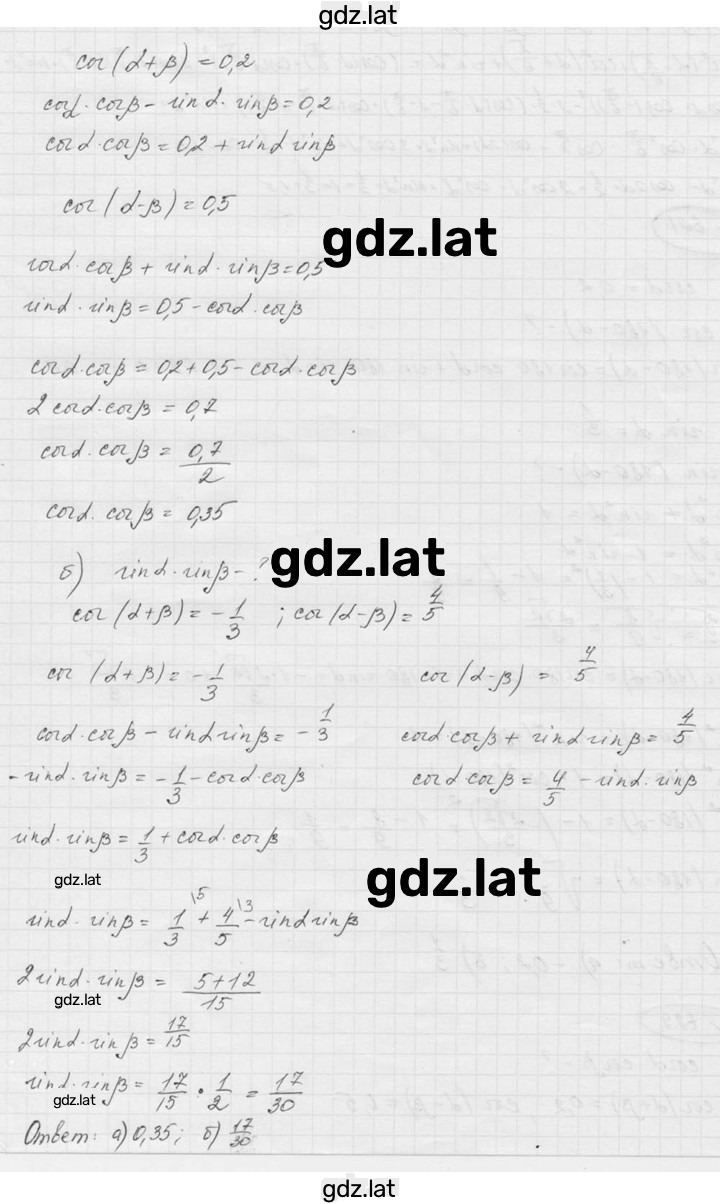 gdz.lat
cos(α+β)=0,2
cosα·cosβ - sinα·sinβ=0,2
cosα·cosβ=0,2+sinα sinβ
cos(α-β)=0,5
gdz.lat
cosα·cosβ + sinα·sinβ=0,5
sinα·sinβ=0,5-cosα·cosβ
cosα·cosβ=0,2+0,5-cosα·cosβ
2cosα·cosβ=0,7
cosα·cosβ = 0,7/2
cosα·cosβ=0,35
gdz.lat
б) sinα·sinβ-?
cos(α+β)=-1/3 ; cos(α-β)=4/5
cos(α+β)=-1/3 cos(α-β)=4/5
cosα·cosβ-sinα sinβ=-1/3 cosα·cosβ+sinα sinβ=4/5
-sinα·sinβ=-1/3-cosα·cosβ cosα cosβ=4/5-sinα·sinβ
sinα·sinβ=1/3+cosα·cosβ
gdz.lat
gdz.lat
sinα·sinβ=1/3\5+4/5\3-sinα sinβ
2sinα·sinβ=5+12/15
gdz.lat
2sinα·sinβ=17/15
sinα·sinβ=17/15·1/2=17/30
gdz.lat
Ответ: а)0,35; б)17/30
gdz.lat